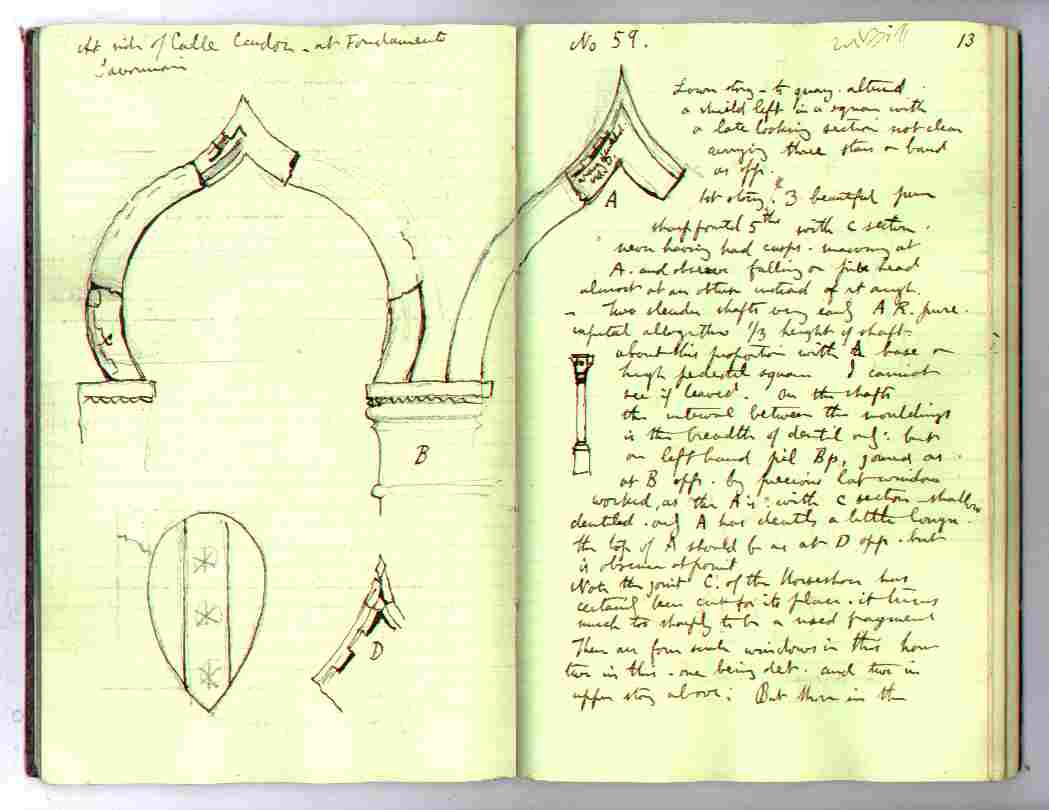 At side of Calle Cendon - at Fondamenta
No 59.
13
Lower story - to quay. altered
a shield left in a square with
a late looking section not clear
carrying three stars on band
as opp.
1st story. 3 beautiful pure
sharp pointed 5ths with C section.
never having had cusps. masonry at
A. and observe falling on head
almost at an obtuse instead of rt angle.
- Two slender shafts very early A R. pure.
capital altogether 1/3 height of shaft
about this proportion with base on
high pedestal square I cannot
see if leaved. On the shafts
the interval between the mouldings
is the breadth of dentil only: but
on left hand pil Bp, joined as
at B opp. by precious
worked, as the A is: with C section - shallow
dentiled. only A has dentils a little longer.
the top of A should be as at D opp. but
is obscure at point
Note the joint C. of the Horseshoe has
certainly been cut for its place. it turns
much too sharply to be a used fragment
There are four such windows in this house
two in this - one being det. and two in
upper story above: But there in the
A
B
C
D